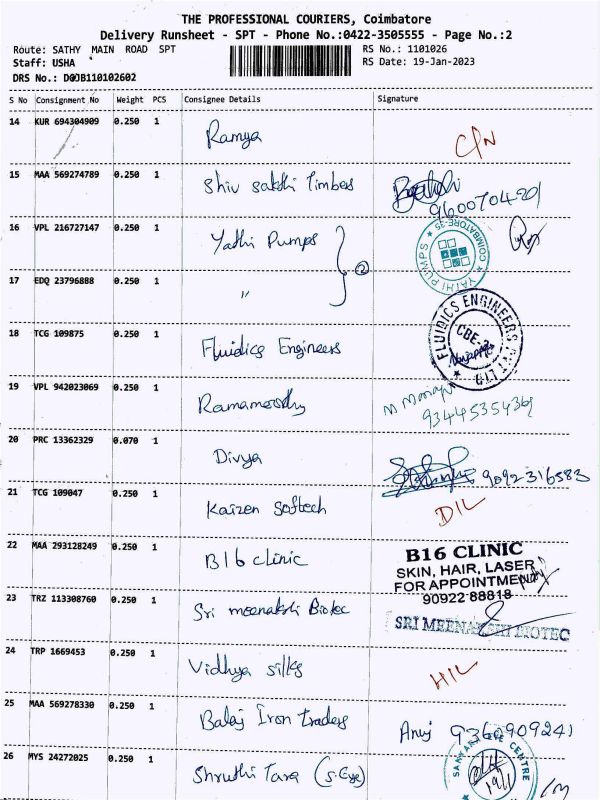 THE PROFESSIONAL COURIERS, Coimbatore
Delivery Runsheet - SPT - Phone No.:0422-3505555 - Page No.:2
Route: SATHY MAIN ROAD SPT
RS No.: 1101026
Staff: USHA
RS Date: 19-Jan-2023
DRS No.: DOJB110102602
S No Consignment No Weight PCS Consignee Details Signature
14 KUR 694304909 0.250 1 Ramya
15 MAA 569274789 0.250 1 Shiv sakthi Timbers 9600704201
16 VPL 216727147 0.250 1 Yathi Pumps
YATHI PUMPS COIMBATORE-35
2
17 EDQ 23796888 0.250 1 "
18 TCG 109875 0.250 1 Fluidics Engineers
FLUIDICS ENGINEERS PVT LTD
CBE-
19 VPL 942023069 0.250 1 Ramamoorthy
20 PRC 13362329 0.070 1 Divya 9092316583
21 TCG 109047 0.250 1 Kaizen Softech DIL
22 MAA 293128249 0.250 1 B16 clinic
B16 CLINIC
SKIN, HAIR, LASER
FOR APPOINTMENT
90922 88818
23 TRZ 113308760 0.250 1 Sri meenakshi Biotec
SRI MEENAKSHI BIOTEC
24 TRP 1669453 0.250 1 Vidhya silks HIL
25 MAA 569278330 0.250 1 Balaj Iron traders Anuj 9360909241
26 MYS 24272025 0.250 1 Shruthi Tara (S.Eye)
CENTRE